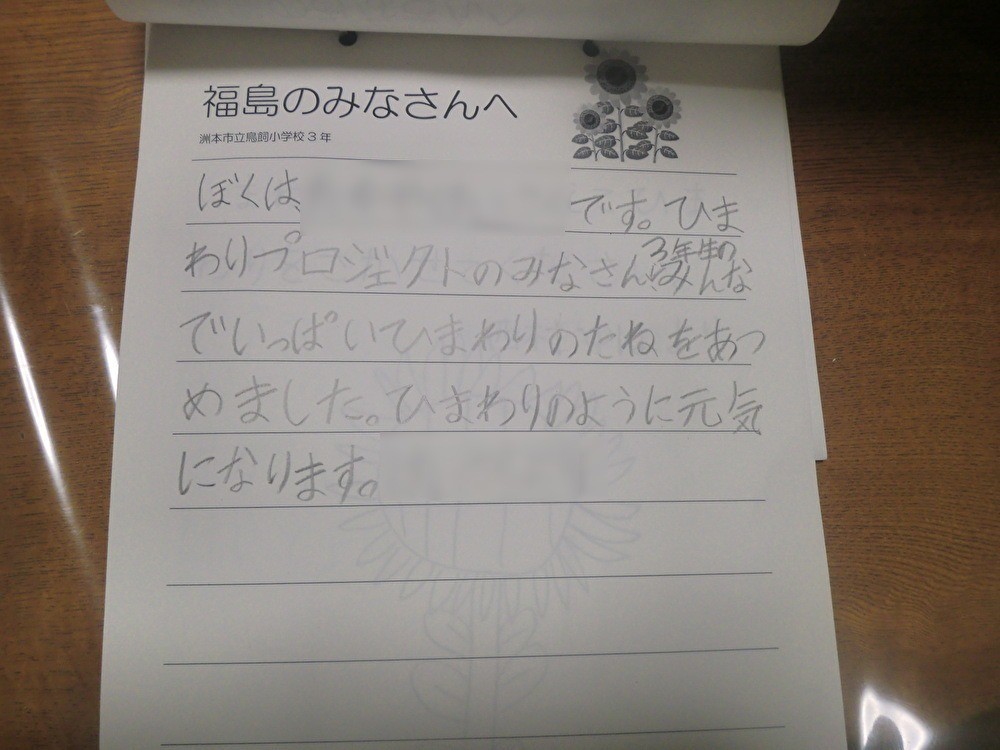 福島のみなさんへ
洲本市立鳥飼小学校3年
ぼくは、
です。ひま
わりプロジェクトのみなさん、3年生のみんな
でいっぱいひまわりのたねをあつ
めました。ひまわりのように元気
になります。